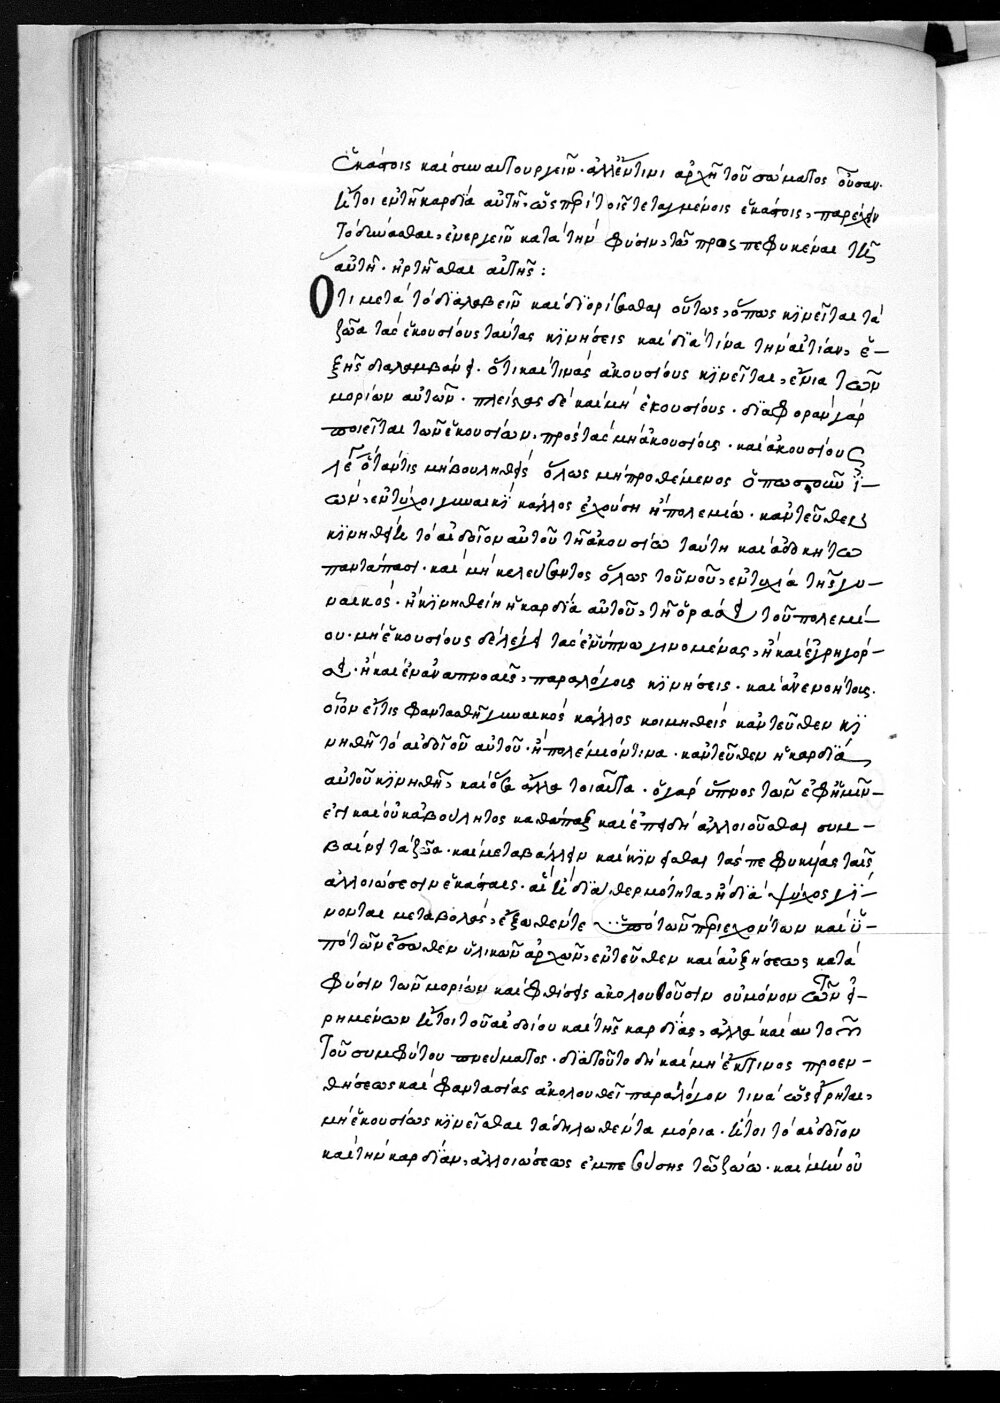 ἑκάστοις καὶ συναυτουργεῖν· ἀλλ' ἔν τινι ἀρχῇ τοῦ σώματος οὖσαν·
ἤτοι ἐν τῇ καρδία αὐτῆ, ὡς περὶ τοῖς τεταγμένοις ἑκάστοις, παρέχειν
τὸ δύνασθαι, ἐνεργεῖν κατὰ τὴν φύσιν, τῶ προσπεφυκέναι
αὐτῆ· ἠρτῆσθαι αὐτῆς:
Ὅτι μετὰ τὸ διαλαβεῖν καὶ διορίσασθαι οὕτως, ὅπως κινεῖται τὰ
ζῶα τὰς ἑκουσίους ταύτας κινήσεις καὶ διὰ τίνα τὴν αἰτίαν, ἑ-
ξῆς διαλαμβάνει· ὅτι καὶ τινὰς ἀκουσίους κινεῖται, ἔνια τῶν
μορίων αὐτῶν· πλείστας δὲ καὶ μὴ ἑκουσίους· διαφορὰν γὰρ
ποιεῖται τῶν ἑκουσίων, πρὸς τὰς μὴ ἀκουσίους· καὶ ἀκουσίους
λέγει ὅταν τις μὴ βουληθεὶς ὅλως μὴ προθέμενος ὁπωσποῦν ἰ-
ὼν, ἐντύχοι γυναικὶ κάλλος ἐχούση ἢ πολεμίω· κἀντεῦθεν
κινηθείη τὸ αἰδοῖον αὐτοῦ τῆ ἀκουσίω ταύτη καὶ ἀδοκήτω
παντάπασι· καὶ μὴ κελεύσαντος ὅλως τοῦ νοῦ, ἐντυχία τῆς γυ-
ναικός· ἢ κινηθείη ἡ καρδία αὐτοῦ, τῆ ὁράσει τοῦ πολεμί-
ου· μὴ ἑκουσίους δὲ λέγει τὰς ἐν ὕπνω γινομένας, ἢ καὶ ἐγρηγόρ-
σει· ἢ καὶ ἐν ἀναπνοαῖς, παραλόγους κινήσεις· καὶ ἀνεννοήτους·
οἷον εἴ τις φαντασθῆ γυναικὸς κάλλος κοιμηθεὶς κἀντεῦθεν κι
νηθῆ τὸ αἰδοῖον αὐτοῦ· ἢ πολέμιόν τινα· κἀντεῦθεν ἡ καρδία
αὐτοῦ κινηθῆ, καὶ ὅσα ἄλλα τοιαῦτα· ὁ γὰρ ὕπνος τῶν ἐφ' ἡμῖν
ἐστι καὶ οὐκ ἀβούλητος καθάπαξ καὶ ἐπειδὴ ἀλλοιοῦσθαι συμ-
βαίνει τὰ ζῶα· καὶ μεταβάλλειν καὶ κινεῖσθαι τὰς πεφυκυίας ταῖς
ἀλλοιώσεσιν ἑκάσταις· αἳ ἢ διὰ θερμότητα, ἢ διὰ ψύχος γί-
νονται μεταβολαὶ, ἔξωθέν τε ὑπὸ τῶν περιεχόντων καὶ ὑ-
πὸ τῶν ἔσωθεν ὑλικῶν ἀρχῶν, ἐντεῦθεν καὶ αὐξήσεως κατὰ
φύσιν τῶν μορίων καὶ φθίσεις ἀκολουθοῦσιν οὐ μόνον τῶν εἰ-
ρημένων ἤτοι τοῦ αἰδοίου καὶ τῆς καρδίας, ἀλλὰ καὶ αὐτοῦ
τοῦ συμφύτου πνεύματος· διὰ τοῦτο δὴ καὶ μὴ ἔκ τινος προεν-
θήσεως καὶ φαντασίας ἀκολουθεῖ παράλογόν τινα ὡς εἴρηται,
μὴ ἑκουσίως κινεῖσθαι τὰ δηλωθέντα μόρια· ἤτοι τὸ αἰδοῖον
καὶ τὴν καρδίαν, ἀλλοιώσεως ἐμπεσούσης τῶ ζώω· καὶ μὴν οὐ